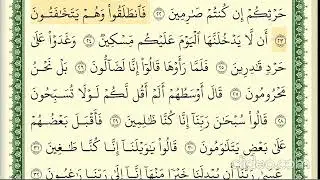 حَرْثِكُمْ إِن كُنتُمْ صَٰرِمِينَ ٢٢ فَٱنطَلَقُوا۟ وَهُمْ يَتَخَٰفَتُونَ
٢٣ أَن لَّا يَدْخُلَنَّهَا ٱلْيَوْمَ عَلَيْكُم مِّسْكِينٌ ٢٤ وَغَدَوْا۟ عَلَىٰ
حَرْدٍ قَٰدِرِينَ ٢٥ فَلَمَّا رَأَوْهَا قَالُوٓا۟ إِنَّا لَضَآلُّونَ ٢٦ بَلْ نَحْنُ
مَحْرُومُونَ ٢٧ قَالَ أَوْسَطُهُمْ أَلَمْ أَقُل لَّكُمْ لَوْلَا تُسَبِّحُونَ
٢٨ قَالُوا۟ سُبْحَٰنَ رَبِّنَآ إِنَّا كُنَّا ظَٰلِمِينَ ٢٩ فَأَقْبَلَ بَعْضُهُمْ
عَلَىٰ بَعْضٍ يَتَلَٰوَمُونَ ٣٠ قَالُوا۟ يَٰوَيْلَنَآ إِنَّا كُنَّا طَٰغِينَ ٣١
عَسَىٰ رَبُّنَآ أَن يُبْدِلَنَا خَيْرًا مِّنْهَآ إِنَّآ إِلَىٰ رَبِّنَا رَٰغِبُونَ